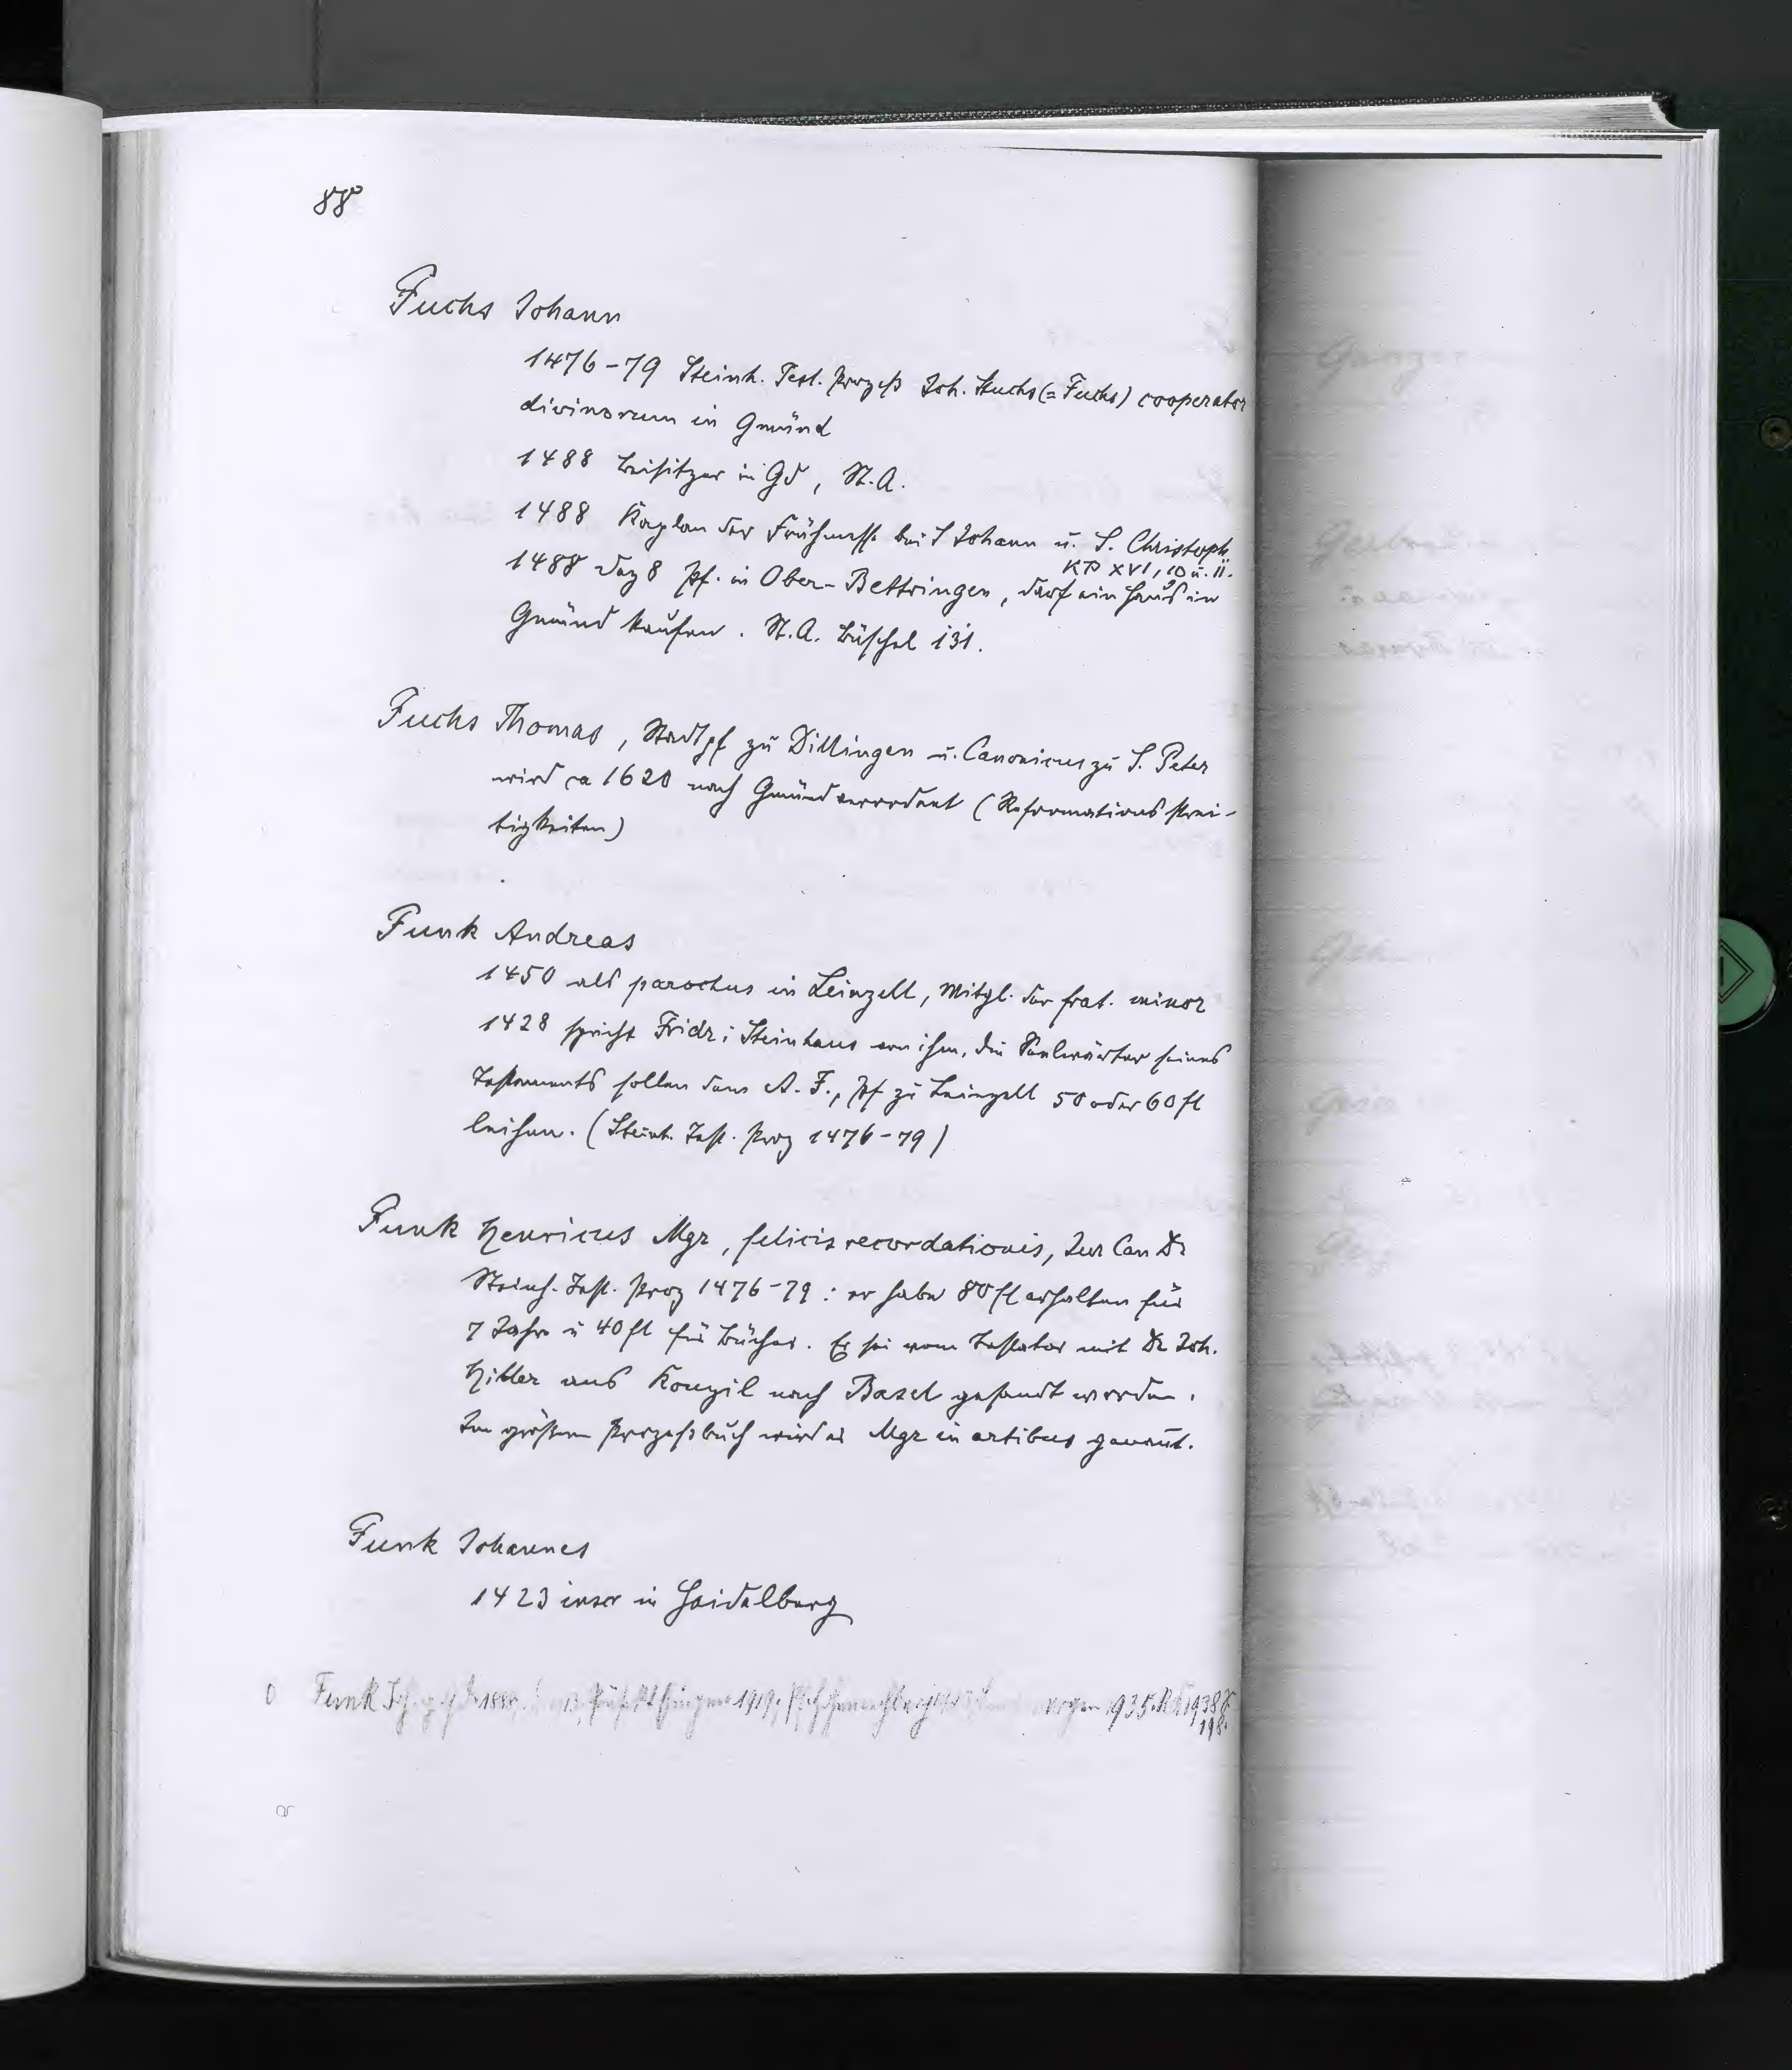 88
Fuchs Johann
1476-79 Steinh. Test. Prozeß Joh. Stuchs (= Fuchs) cooperator
divinorum in Gmünd
1488 Beisitzer in Gd, St.A.
1488 Kaplan der Frühmesse bei S Johann u. S. Christoph.
KB XVI, 10 u. 11.
1488 Dez 8 Pf. in Ober-Bettringen, darf ein Haus in
Gmünd kaufen. St.A. Büschel 131.
Fuchs Thomas, Stadtpf zu Dillingen u. Canonicus zu S. Peter
wird ca 1620 nach Gmünd verordnet (Reformationsstrei-
tigkeiten)
Funk Andreas
1450 als parochus in Leinzell, Mitgl. der frat. minor
1428 spricht Fridr. Steinhaus von ihm, die Seelwärter seines
Testaments sollen dem A. F., Pf zu Leinzell 50 oder 60 fl
leihen. (Steinh. Test. Proz 1476-79)
Funk Henricus Mgr, felicis recordationis, Jur Can Dr
Steinh. Test. Proz 1476-79: er habe 80 fl erhalten für
7 Jahre u 40 fl für Bücher. Er sei vom Testator mit Dr Joh.
Hitler aus Konzil nach Basel gesandt worden.
Im größern Prozeßbuch wird er Mgr in artibus genannt.
Funk Johannes
1423 inscr in Heidelberg
Funk 1919, 1935. 1938
198.